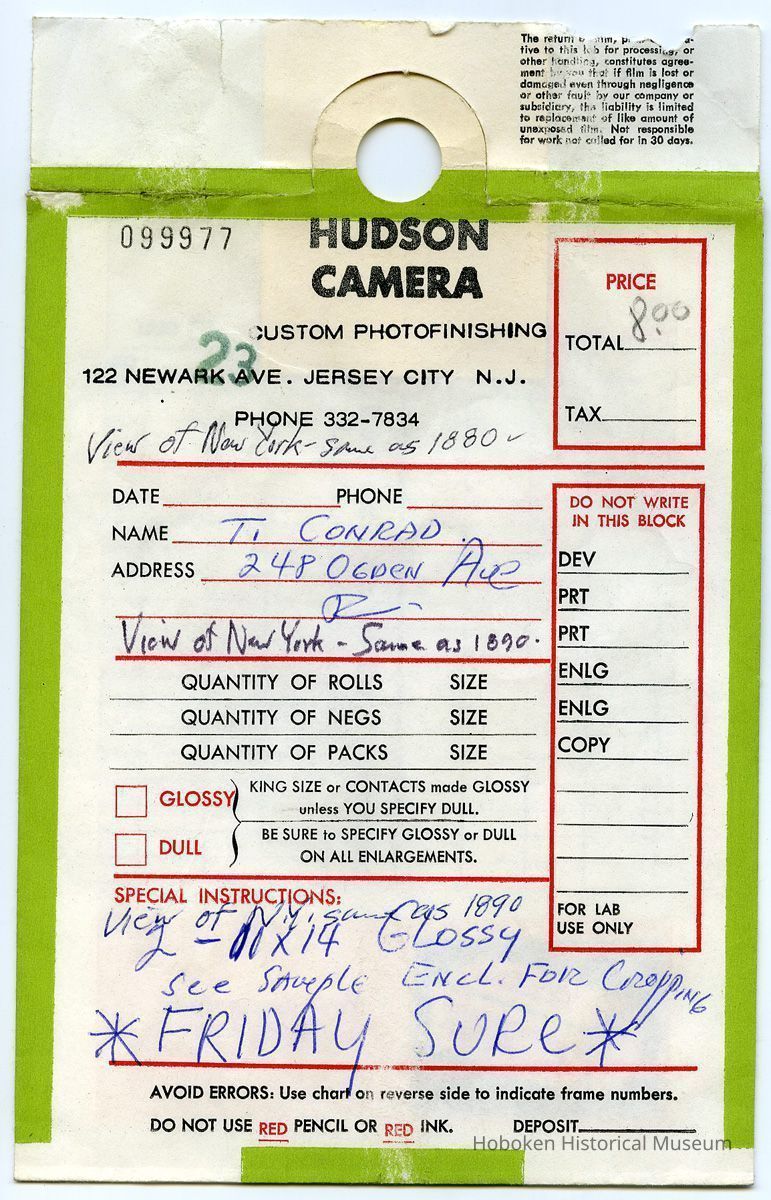 The return film,
tive to this lab for processing, or
other handling, constitutes agree-
ment by you that if film is lost or
damaged even through negligence
or other fault by our company or
subsidiary, the liability is limited
to replacement of like amount of
unexposed film. Not responsible
for work not called for in 30 days.
099977
HUDSON
CAMERA
CUSTOM PHOTOFINISHING
23
122 NEWARK AVE. JERSEY CITY N.J.
PHONE 332-7834
View of New York - same as 1880
PRICE
8.00
TOTAL
TAX
DATE PHONE
NAME T. CONRAD
ADDRESS 248 OGDEN Ave
View of New York - Same as 1890.
QUANTITY OF ROLLS SIZE
QUANTITY OF NEGS SIZE
QUANTITY OF PACKS SIZE
GLOSSY
KING SIZE or CONTACTS made GLOSSY
unless YOU SPECIFY DULL.
DULL
BE SURE to SPECIFY GLOSSY or DULL
ON ALL ENLARGEMENTS.
DO NOT WRITE
IN THIS BLOCK
DEV
PRT
PRT
ENLG
ENLG
COPY
FOR LAB
USE ONLY
SPECIAL INSTRUCTIONS:
View of N.Y. same as 1890
2 - 11x14 GLOSSY
see SAMPLE ENCL. FOR CROPPING
*FRIDAY SURE*
AVOID ERRORS: Use chart on reverse side to indicate frame numbers.
DO NOT USE RED PENCIL OR RED INK. DEPOSIT
Hoboken Historical Museum